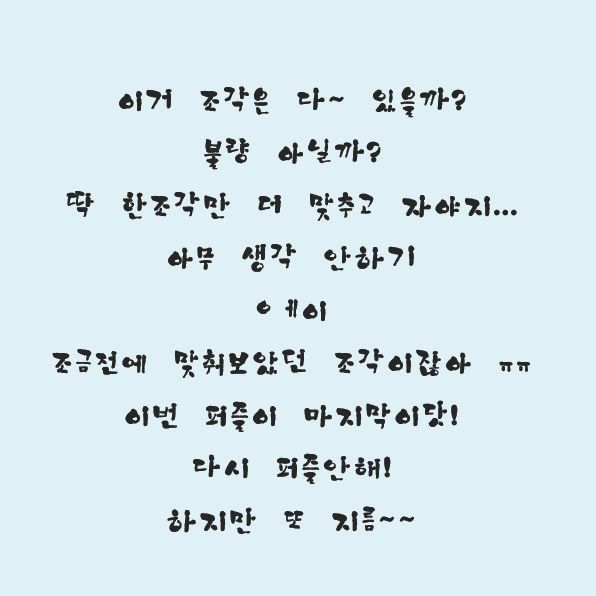 이거 조각은 다~ 있을까?
불량 아닐까?
딱 한조각만 더 맞추고 자야지...
아무 생각 안하기
에이
조금전에 맞춰보았던 조각이잖아 ㅠㅠ
이번 퍼즐이 마지막이닷!
다시 퍼즐안해!
하지만 또 지름~~